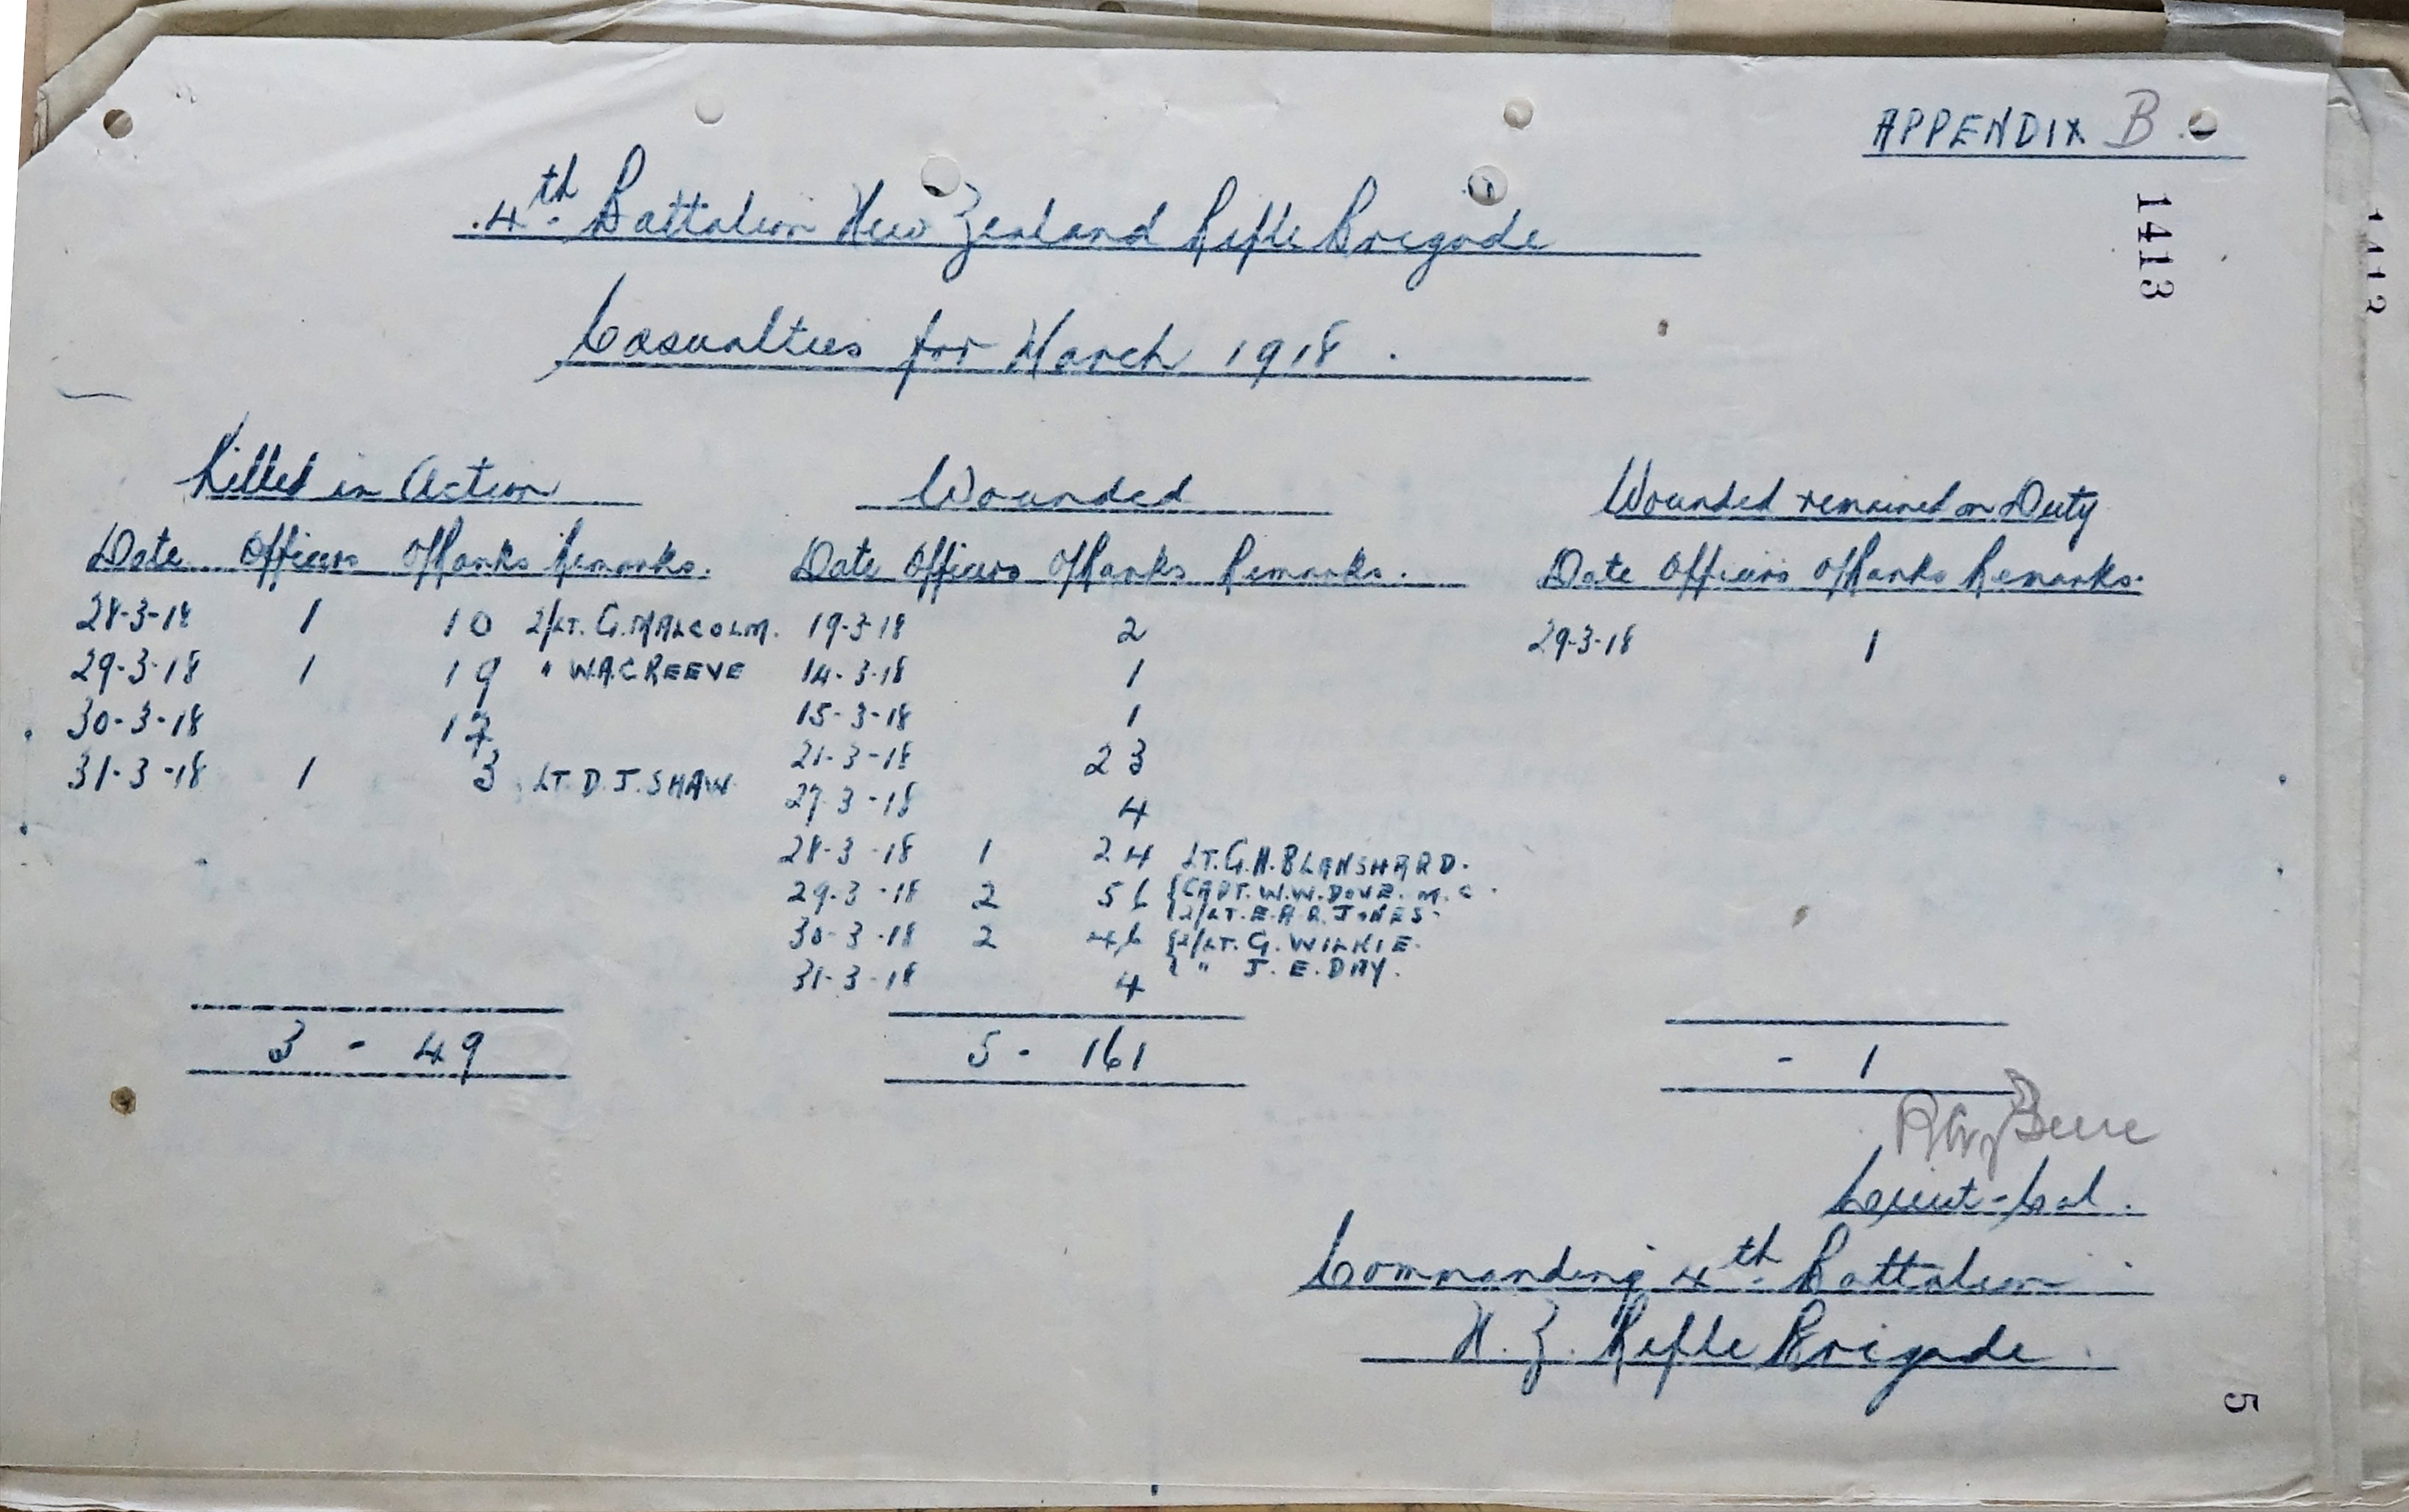 APPENDIX B.
1413
4th Battalion New Zealand Rifle Brigade
Casualties for March 1918.
Killed in Action
Date Officers O/Ranks Remarks.
28-3-18 1 10 2/LT. G. MALCOLM.
29-3-18 1 19 " W.A.C REEVE
30-3-18 17
31-3-18 1 3 LT. D. J. SHAW.
3 - 49
Wounded
Date Officers O/Ranks Remarks.
19-3-18 2
14-3-18 1
15-3-18 1
21-3-18 23
27-3-18 4
28-3-18 1 24 LT. G.H. BLANSHARD.
29-3-18 2 56 {CAPT. W.W. DOVE. M.C.
{2/LT. E.A.R. JONES.
30-3-18 2 46 {2/LT. G. WILKIE.
{ " J. E. DAY.
31-3-18 4
5 - 161
Wounded remained on Duty
Date Officers O/Ranks Remarks.
29-3-18 1
- 1
Lieut-Col.
Commanding 4th Battalion
N. Z. Rifle Brigade.
5